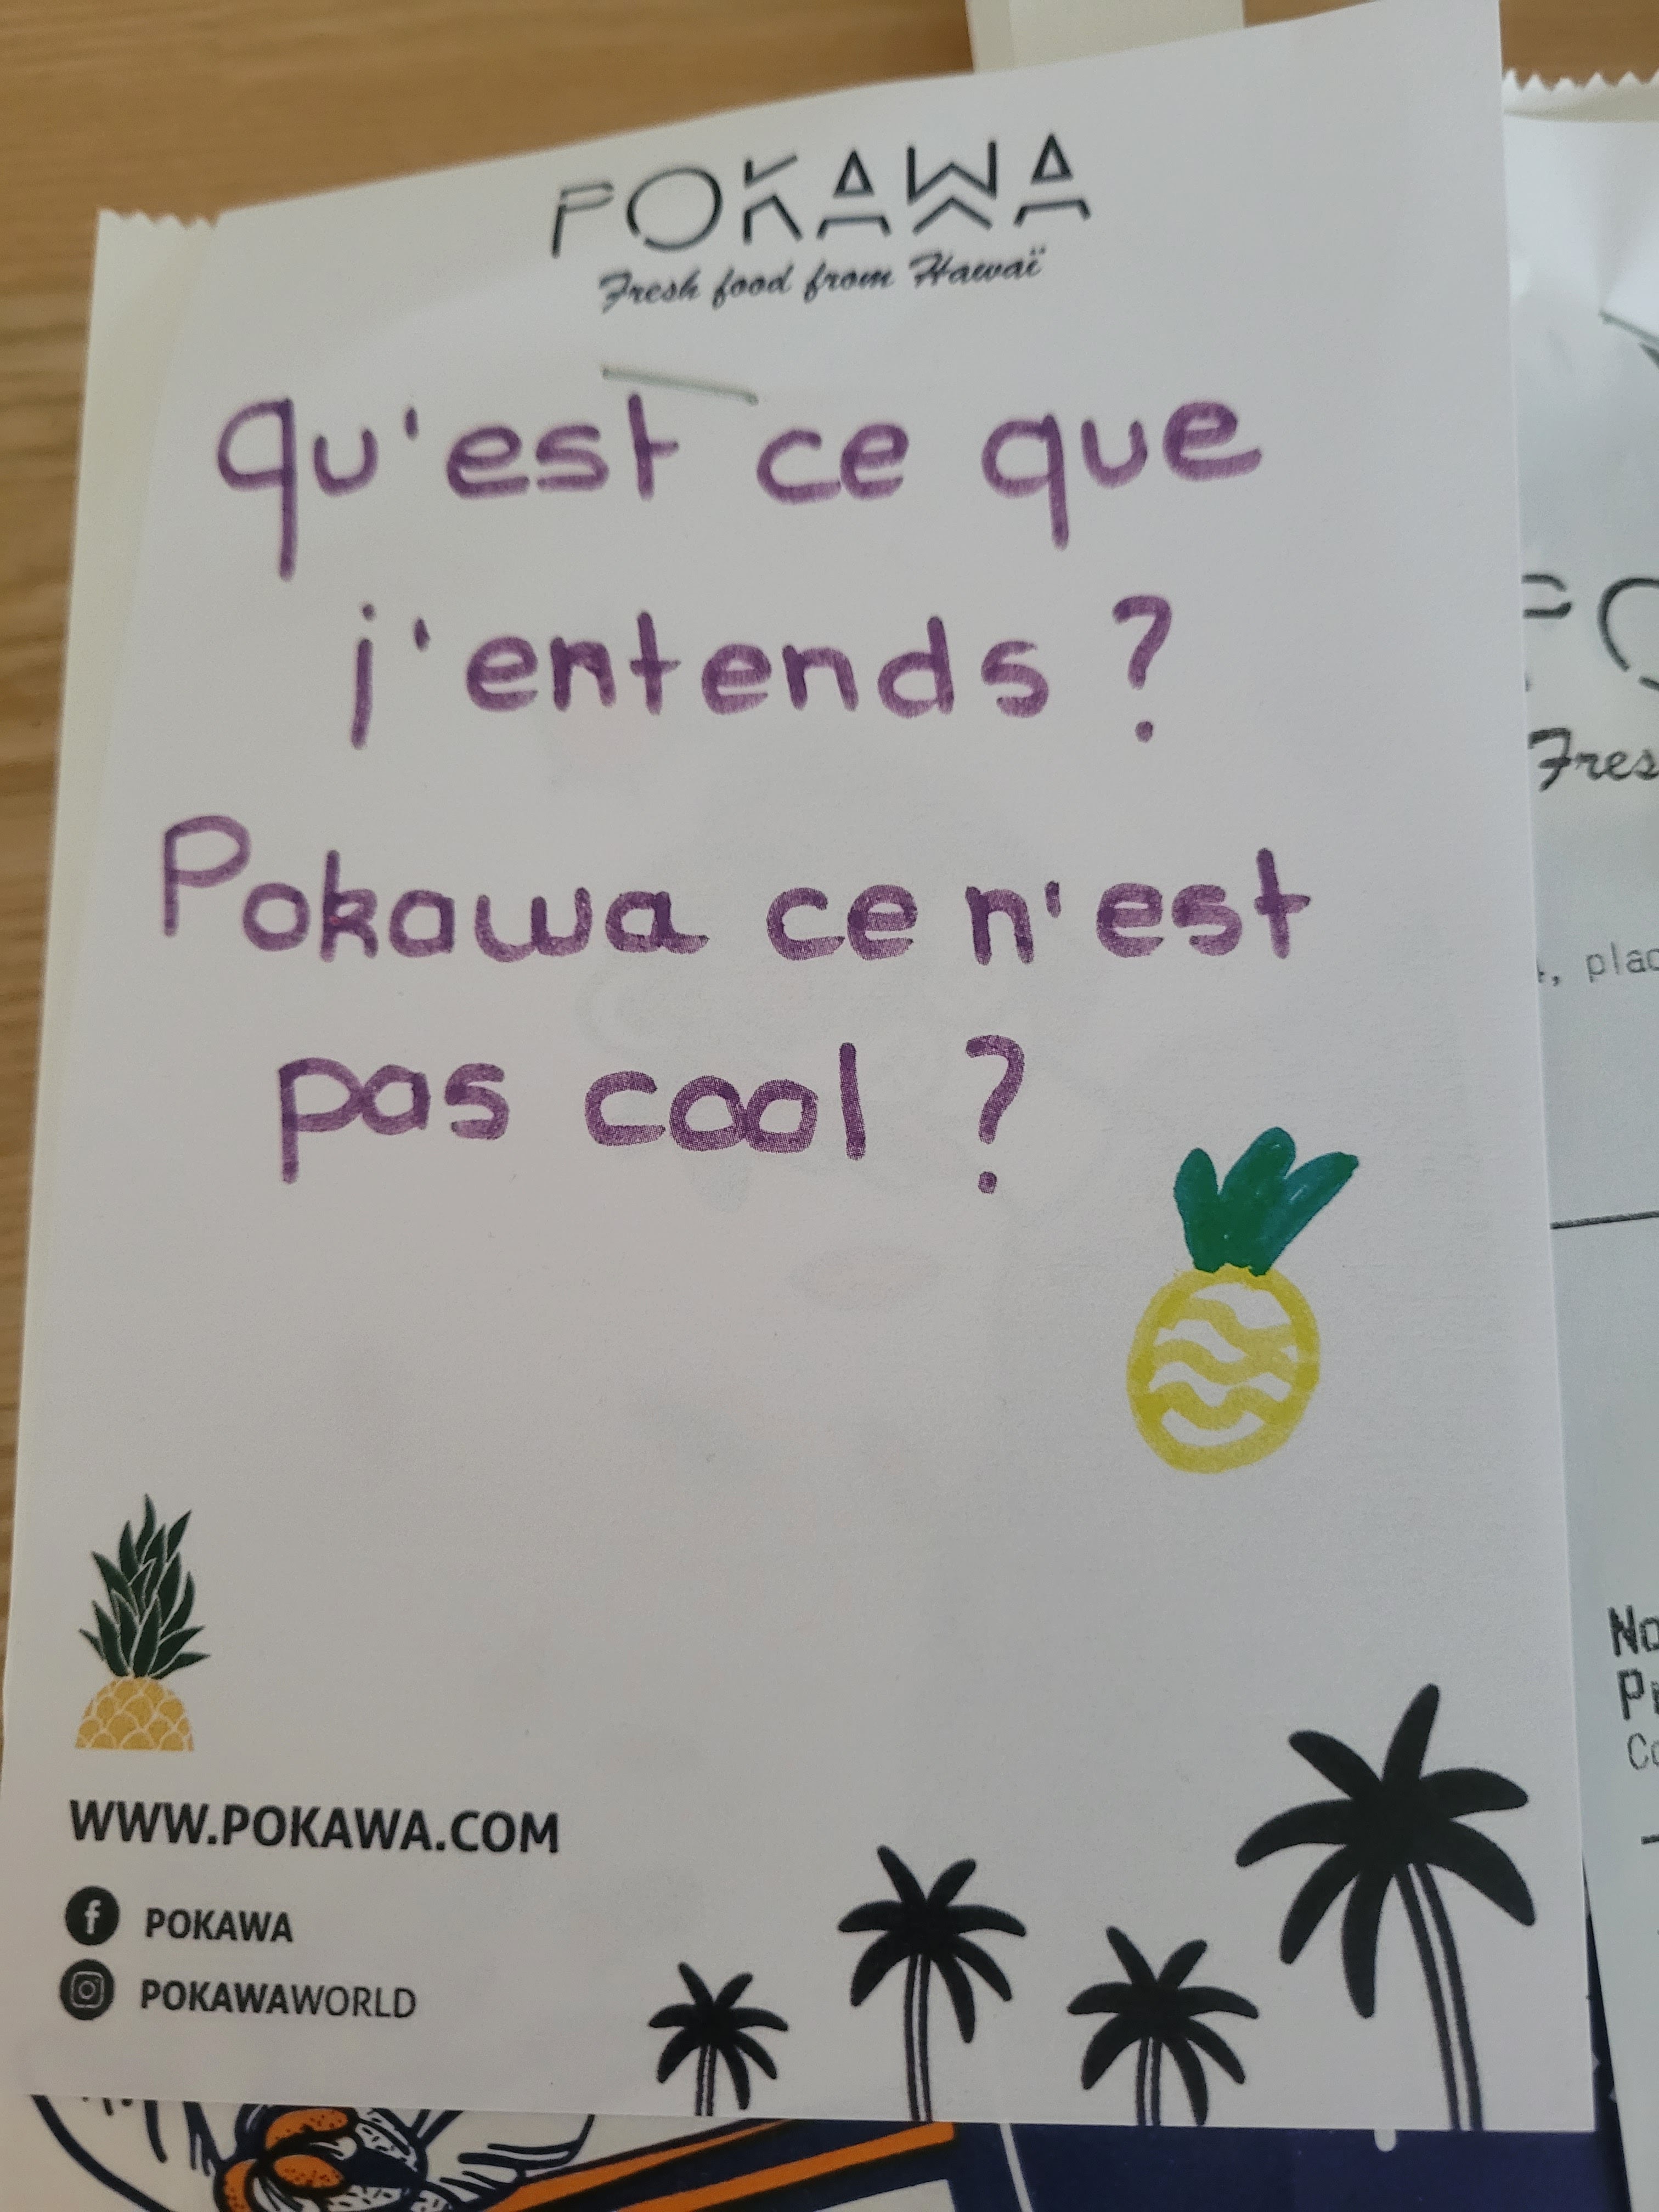 POKAWA
Fresh food from Hawaï
qu'est ce que
j'entends ?
Pokawa ce n'est
pas cool ?
WWW.POKAWA.COM
POKAWA
POKAWAWORLD
Fres
, plac
No